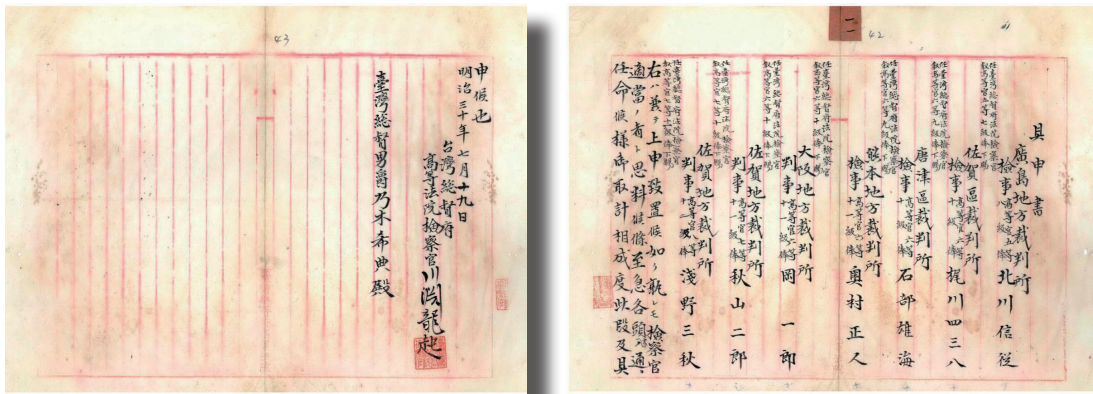 42
具申書
廣島地方裁判所
檢事 高等官五等 八級俸 北川信從
任臺灣總督府法院檢察官
敍高等官五等七級俸下賜
佐賀區裁判所
檢事 高等官六等 十級俸 梶川四三八
任臺灣總督府法院檢察官
敍高等官六等九級俸下賜
唐津區裁判所
檢事 高等官六等 十級俸 石部雄海
任臺灣總督府法院檢察官
敍高等官六等九級俸下賜
熊本地方裁判所
檢事 高等官六等 十一級俸 奥村正人
任臺灣總督府法院檢察官
敍高等官六等十級俸下賜
大阪地方裁判所
判事 高等官六等 十一級俸 岡一郎
任臺灣總督府法院檢察官
敍高等官六等十級俸下賜
佐賀地方裁判所
判事 高等官七等 十一級俸 秋山二郎
任臺灣總督府法院檢察官
敍高等官七等十級俸下賜
佐賀地方裁判所
判事 高等官八等 十一級俸 淺野三秋
任臺灣總督府法院檢察官
敍高等官七等十一級俸下賜
右ハ曩ヲ上申致置候如ク孰レモ檢察官
適當ノ者ト思料候條至急各頭書ノ通
任命候樣御取計相成度此段及具
43
申候也
明治三十年七月十九日
台灣總督府
高等法院檢察官川淵龍起
臺灣總督男爵乃木希典殿